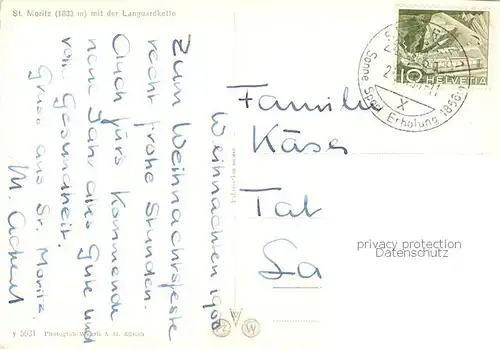 St. Moritz (1833 m) mit der Languardkette
Weihnachten 1960
Zum Weihnachtsfeste
recht frohe Stunden.
Auch fürs Kommende
nem Jahr alles Gute und
von Gesundheit.
Gruss aus St. Moritz.
M.
10 HELVETIA
Sonne Sport Erholung 1856 m
X
Familie
Käse
Tal
La
privacy protection
Datenschutz
y 5631 Photogr. Wehrli A.G. Zürich